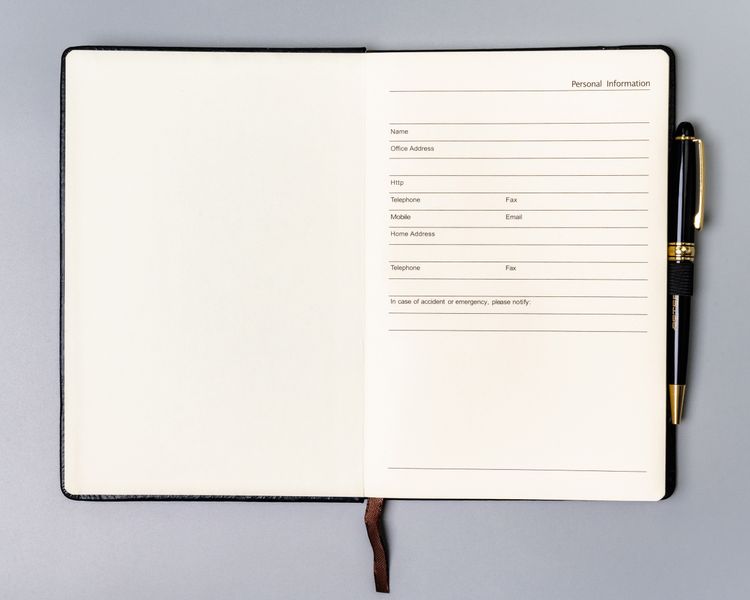 Personal Information
Name
Office Address
Http
Telephone Fax
Mobile Email
Home Address
Telephone Fax
In case of accident or emergency, please notify: